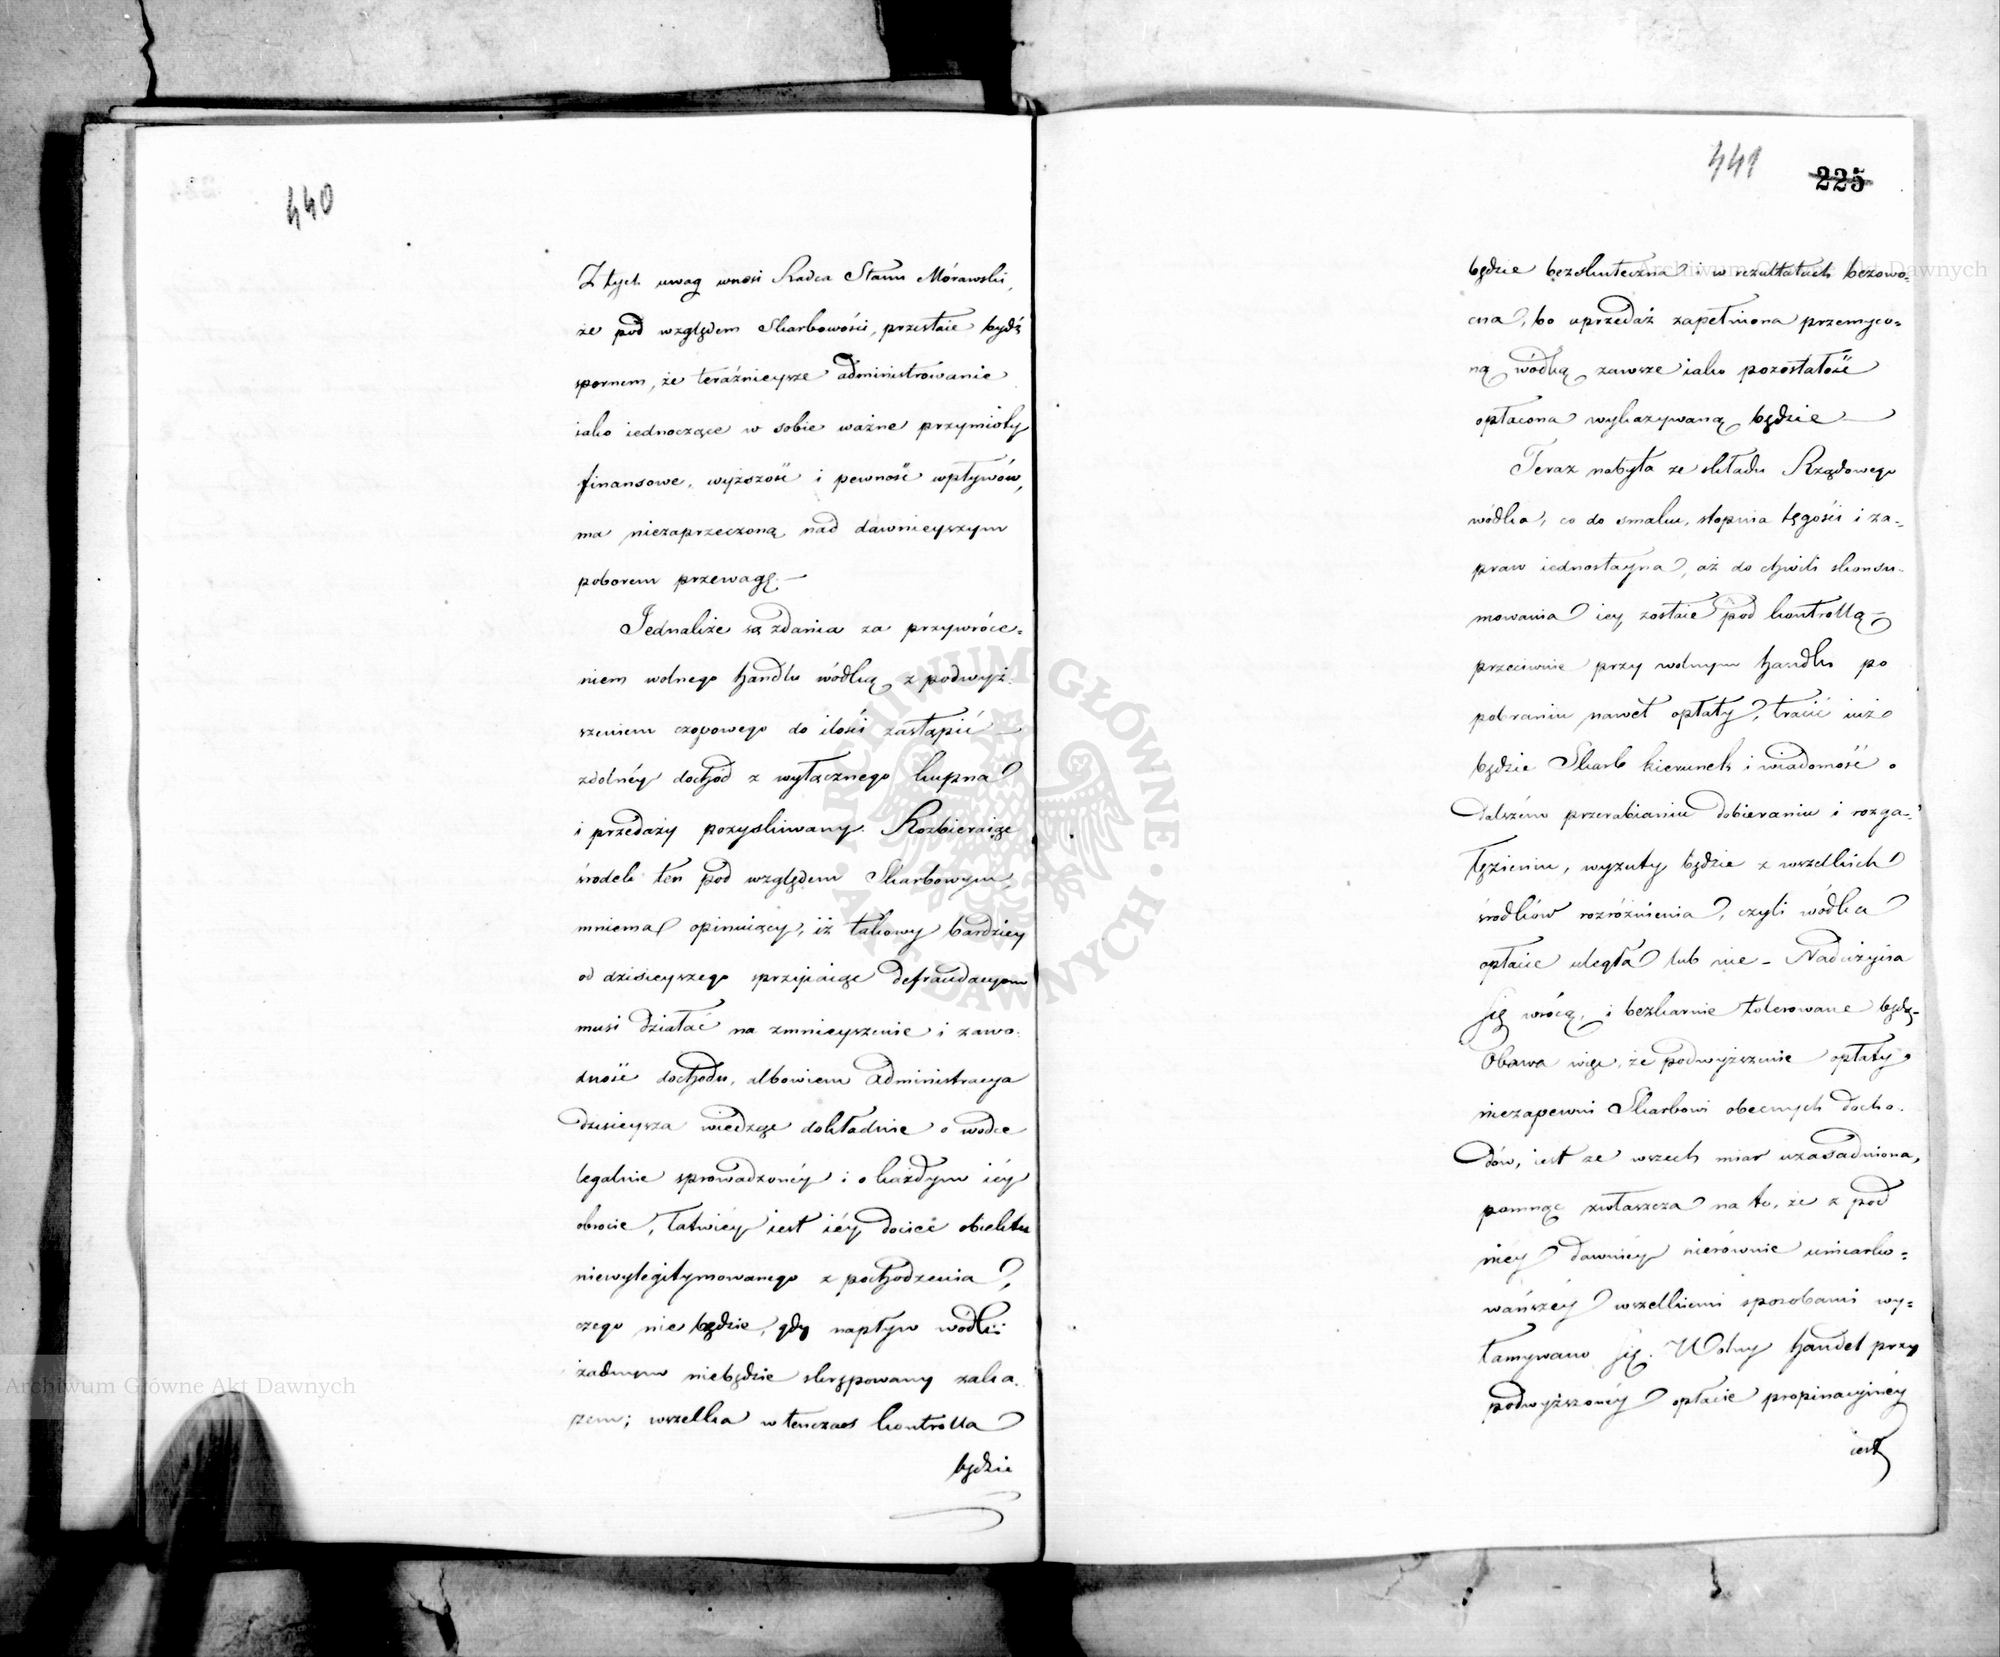 440
Z tych uwag wnosi Radca Stanu Mórawski,
że pod względem Skarbowości, przestaie bydź
spornem, że teraźnieysze administrowanie
iako iednoczące w sobie ważne przymioty
finansowe, wyższość i pewność wpływów,
ma niezaprzeczoną nad dawnieyszym
poborem przewagę.—
Jednakże są zdania za przywróce=
niem wolnego handlu wódką z podwyż.
szeniem czopowego do ilości zastąpić
zdolnéy dochód z wyłącznego kupna
i przedaży pozyskiwany. Rozbieraiąc
środek ten pod względem Skarbowym,
mniema opiniuiący, iż takowy bardziey
od dzisieyszego sprzyiaiąc defraudacyom
musi działać na zmnieyszenie i zawo.
dność dochodu, albowiem Administracya
dzisieysza wiedząc dokładnie o wódce
legalnie sprowadzonéy i o każdym iéy
obrocie, łatwiéy iest iéy dociec obiektu
niewylegitymowanego z pochodzenia,
czego nie będzie, gdy napływ wódki
żadnym niebędzie skrępowany zaka.
zem; wszelka wtenczas kontrolla
będzie
441
225
będzie bezskuteczna i w rezultatach bezowo=
cna, bo uprzedaż zapełniona przemyco=
ną wódką zawsze iako pozostałość
opłacona wykazywaną będzie —
Teraz nabyta ze składu Rządowego
wódka, co do smaku, stopnia tęgości i za=
praw iednostayna, aż do chwili skonsu=
mowania iey zostaie pod kontrollą —
przeciwnie przy wolnym handlu po
pobraniu nawet opłaty, tracić iuż
będzie Skarb kierunek i wiadomość o
dalszém przerabianiu dobieraniu i rozga=
łęzieniu, wyzuty będzie z wszelkich
środków rozróżnienia, czyli wódka
opłacie uległa lub nie — Nadużycia
się wrócą, i bezkarnie tolerowane będą —
Obawa więc, że podwyższenie opłaty
niezapewni Skarbowi obecnych docho.
dów, iest ze wszech miar uzasadniona,
pomnąc zwłaszcza na to, że z pod
niéy dawniéy nierównie umiarko=
wańszéy wszelkiemi sposobami wy=
łamywano się. Wolny handel przy
podwyższonéy opłacie propinacyinéy
iest
ARCHIWUM GŁÓWNE AKT DAWNYCH
Archiwum Główne Akt Dawnych
Archiwum Główne Akt Dawnych